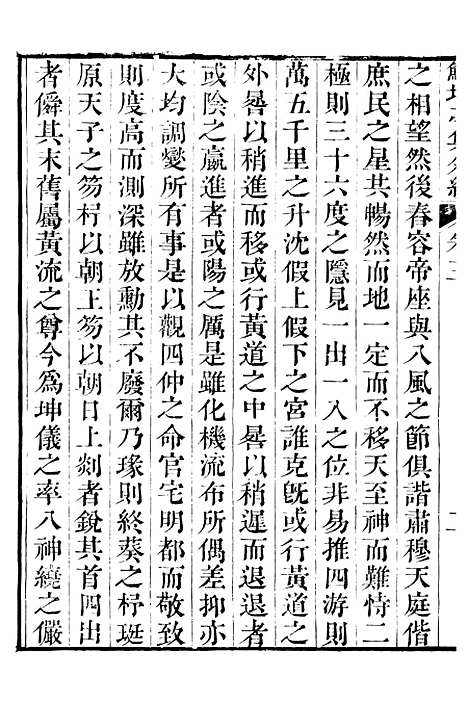 之相望然後春容帝座與八風之節俱諧肅穆天庭偕
庶民之星其暢然而地一定而不移天至神而難恃二
極則三十六度之隱見一出一入之位非易推四游則
萬五千里之升沈假上假下之宮誰克旣或行黃道之
外晷以稍進而移或行黃道之中晷以稍遲而退退者
或陰之羸進者或陽之厲是雖化機流布所偶差抑亦
大均調燮所有事是以觀四仲之命官宅明都而敬致
則度高而測深雖放勳其不廢爾乃瑑則終葵之杼珽
原天子之笏杼以朝王笏以朝日上剡者銳其首四出
者僢其末舊屬黃流之尊今爲坤儀之率八神繞之儼